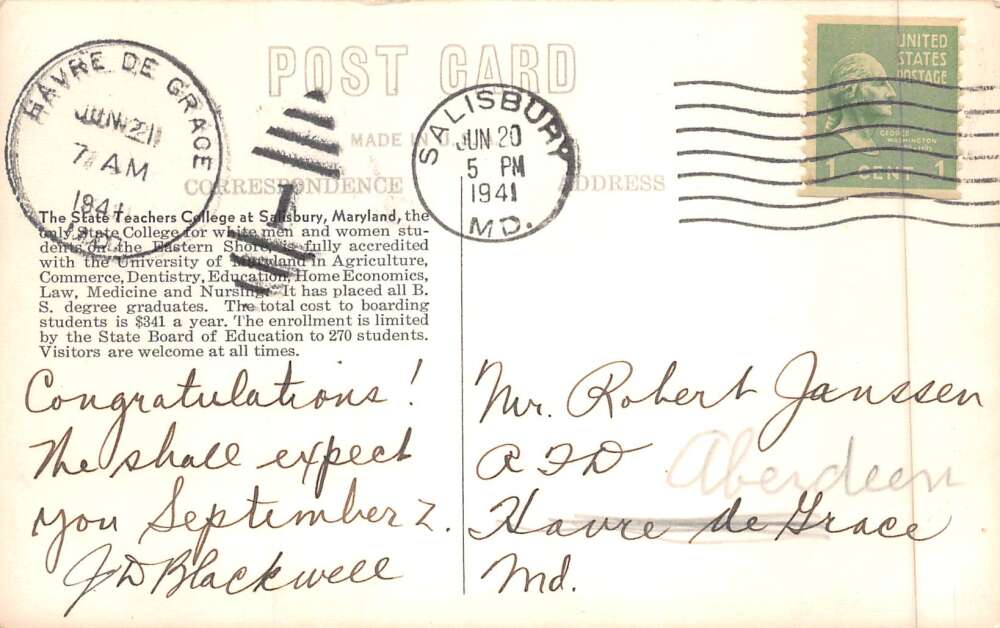 POST CARD
MADE IN U.
CORRESPONDENCE
ADDRESS
HAVRE DE GRACE
JUN 21
7 AM
1941
1
SALISBURY
JUN 20
5 PM
1941
MD.
UNITED
STATES
POSTAGE
GEORGE
WASHINGTON
1 CENT 1
The State Teachers College at Salisbury, Maryland, the
only State College for white men and women stu-
dents on the Eastern Shore, is fully accredited
with the University of Maryland in Agriculture,
Commerce, Dentistry, Education, Home Economics,
Law, Medicine and Nursing. It has placed all B.
S. degree graduates. The total cost to boarding
students is $341 a year. The enrollment is limited
by the State Board of Education to 270 students.
Visitors are welcome at all times.
Congratulations!
We shall expect
you September 2.
JD Blackwell
Mr. Robert Janssen
RFD
Aberdeen
Havre de Grace
Md.